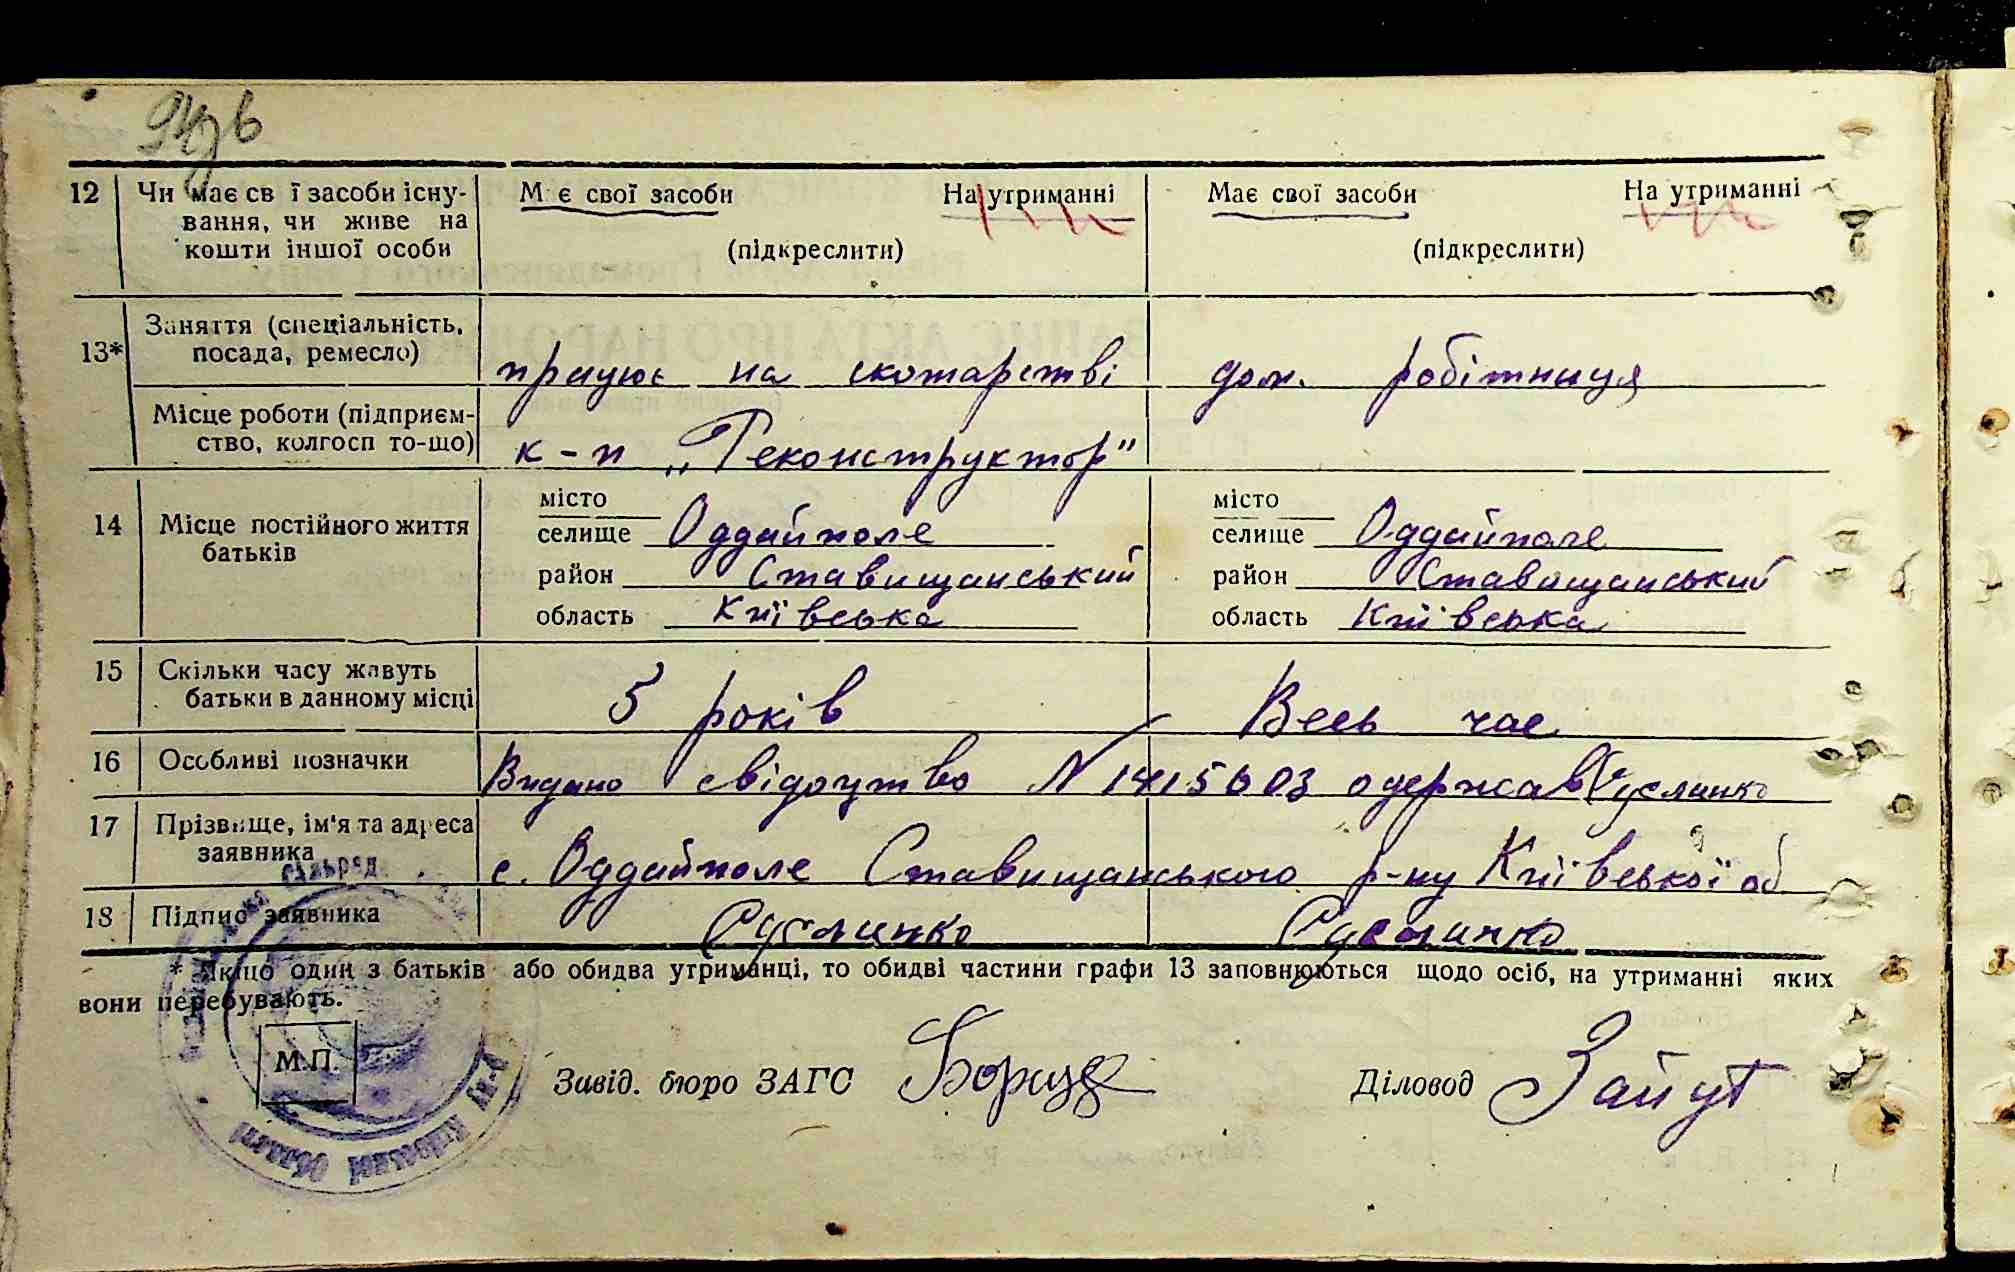 12 Чи має св ї засоби існу- М є свої засоби На утриманні Має свої засоби На утриманні
вання, чи живе на
кошти іншої особи (підкреслити) (підкреслити)
13* Заняття (спеціальність,
посада, ремесло) працює на скотарстві дом. робітниця
Місце роботи (підприєм-
ство, колгосп то-що) к-п „Реконструктор"
14 Місце постійного життя
батьків
місто місто
селище Оддайполе селище Оддайполе
район Ставищанський район Ставищанський
область Київська область Київська
15 Скільки часу живуть
батьки в данному місці 5 років Весь час
16 Особливі позначки Видано свідоцтво N одержав Руслинко
17 Прізвище, ім'я та адреса
заявника с. Оддайполе Ставищанського р-ну Київської об
18 Підпис заявника Руслинко Руслинко
* Якщо один з батьків або обидва утриманці, то обидві частини графи 13 заповнюються щодо осіб, на утриманні яких
вони перебувають.
М.П. Завід. бюро ЗАГС Діловод
р-ну Київської Області